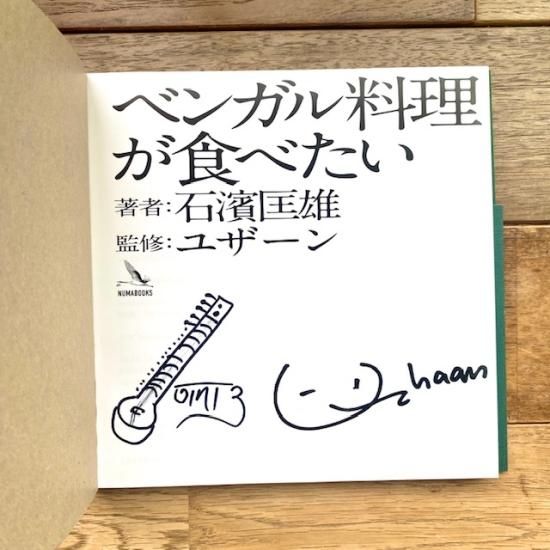 ベンガル料理
が食べたい
著者：石濱匡雄
監修：ユザーン
NUMABOOKS
haan